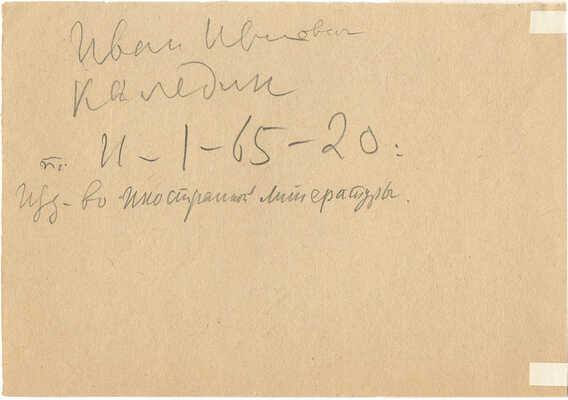 Иван Иванович
Каледин
т. И-1-65-20.
Изд-во иностранной литературы.